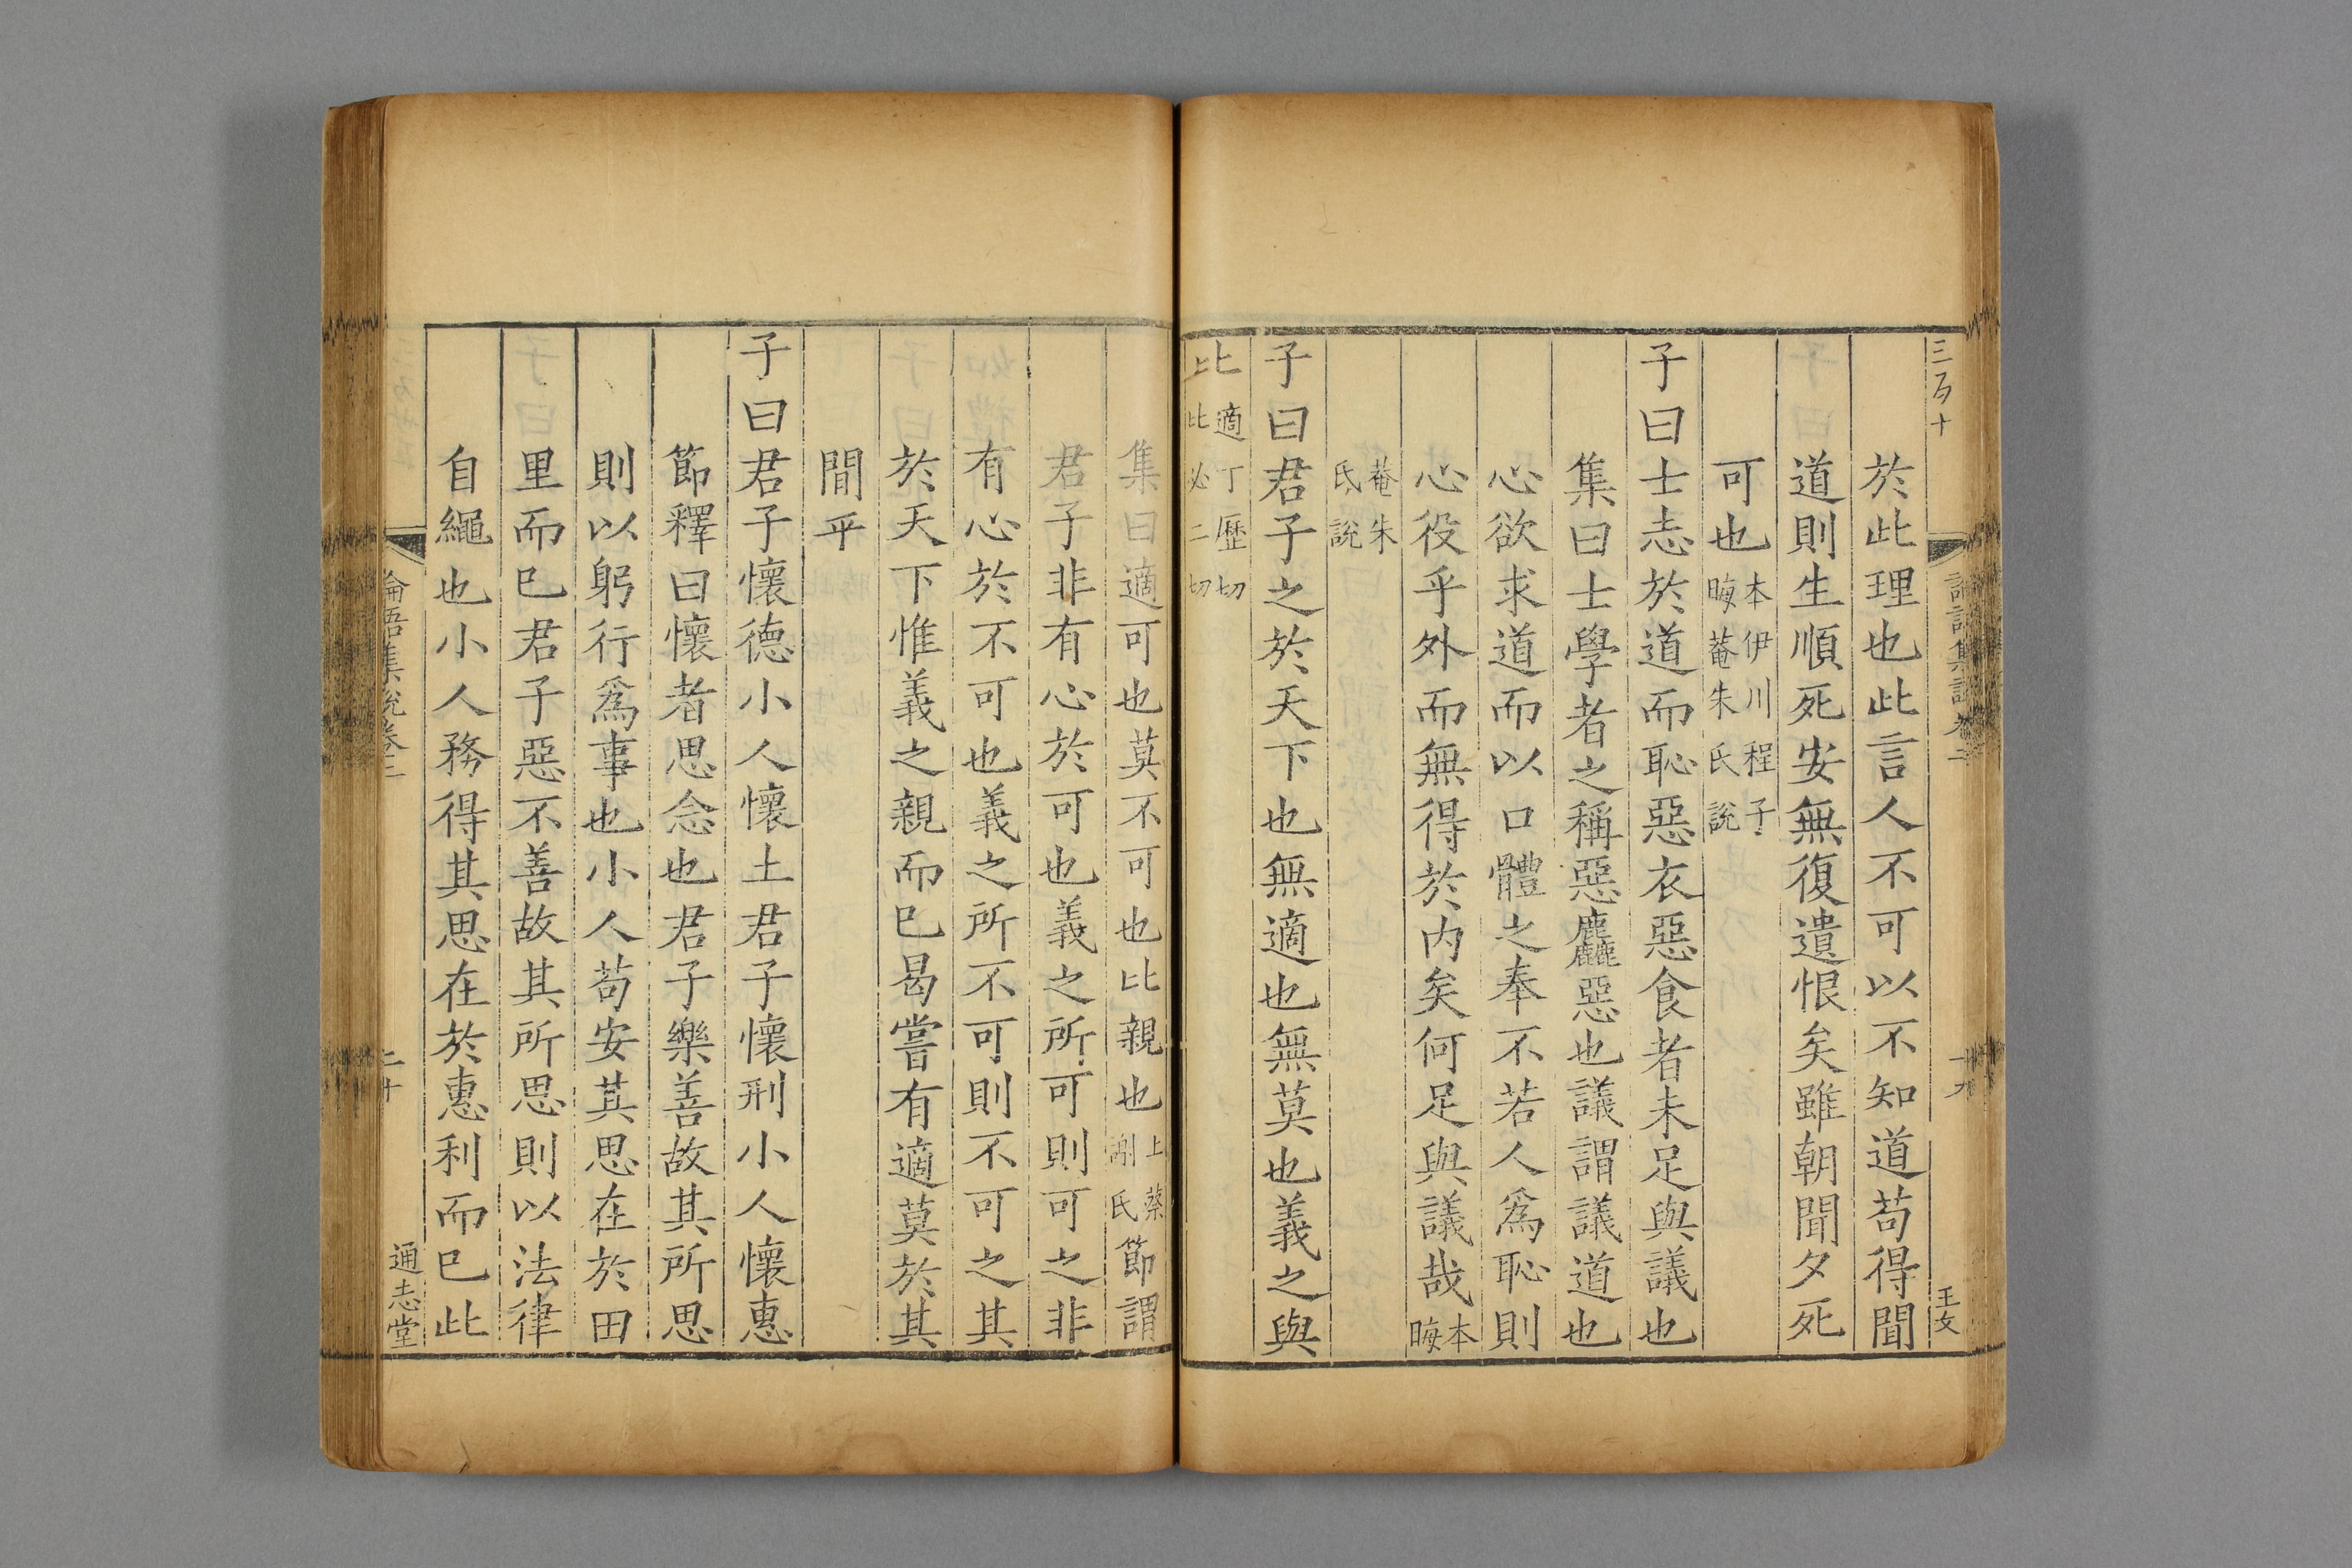 三百十
王文
於此理也此言人不可以不知道苟得聞
道則生順死安無復遺恨矣雖朝聞夕死
可也本伊川程子晦菴朱氏說
子曰士志於道而恥惡衣惡食者未足與議也
集曰士學者之稱惡麤惡也議謂議道也
心欲求道而以口體之奉不若人爲恥則
心役乎外而無得於内矣何足與議哉本晦
菴朱氏說
子曰君子之於天下也無適也無莫也義之與
比適丁歷切比必二切
集曰適可也莫不可也比親也上蔡謝氏節謂
君子非有心於可也義之所可則可之非
有心於不可也義之所不可則不可之其
於天下惟義之親而已曷嘗有適莫於其
間乎
子曰君子懷德小人懷土君子懷刑小人懷惠
節釋曰懷者思念也君子樂善故其所思
則以躬行爲事也小人苟安其思在於田
里而已君子惡不善故其所思則以法律
自繩也小人務得其思在於惠利而已此
論語集說卷二
二十
通志堂